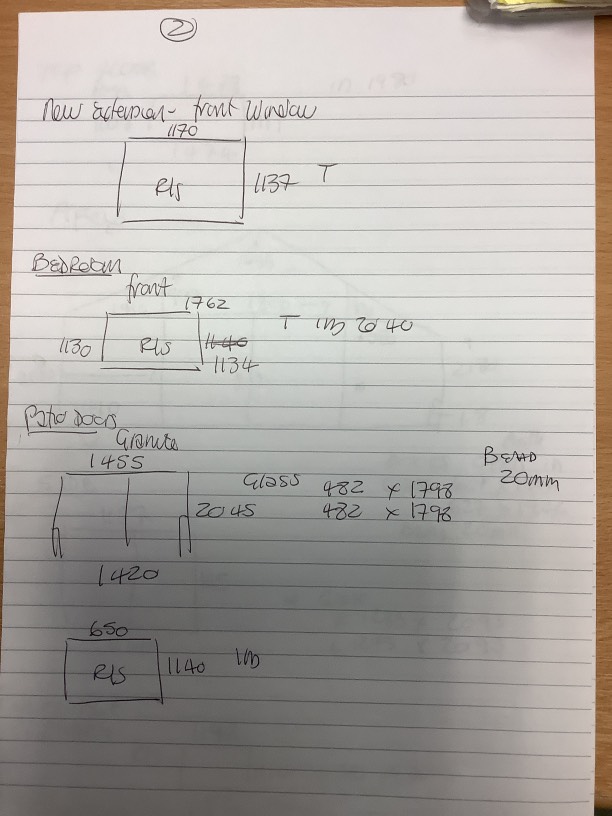 2
New Extension - front Window
1170
RIS 1137 T
BEDROOM
front
1762
1130 RIS 1140 T
1134
Patio Doors
Granite
1455
BEAD
Glass 482 x 1798 20mm
2045 482 x 1798
1420
650
RIS 1140